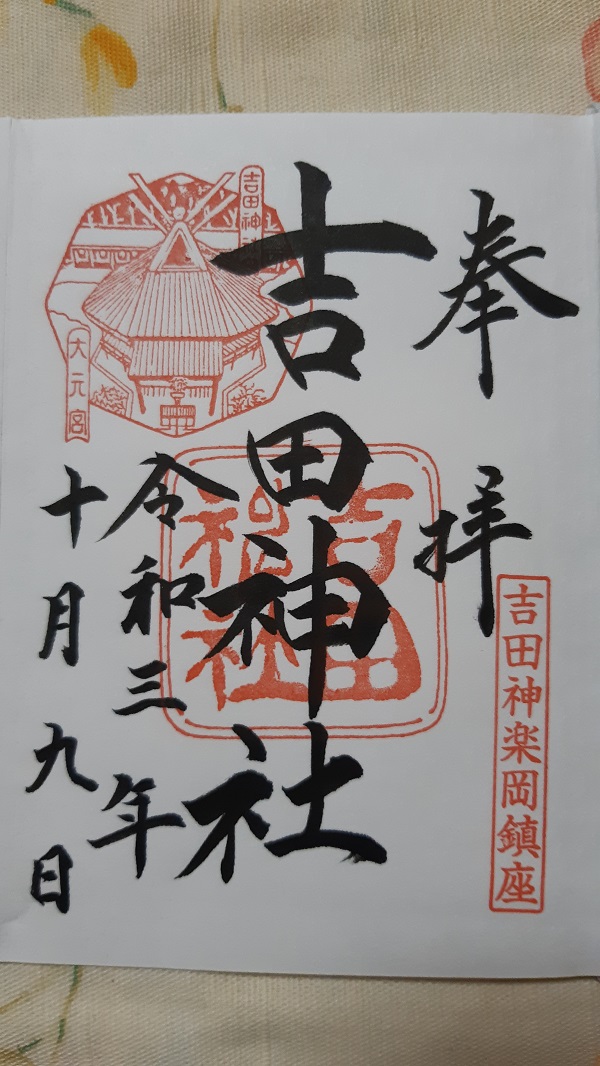 奉拝
吉田神楽岡鎮座
吉田神社
吉田神社
令和三年
十月九日
吉田神
大元宮